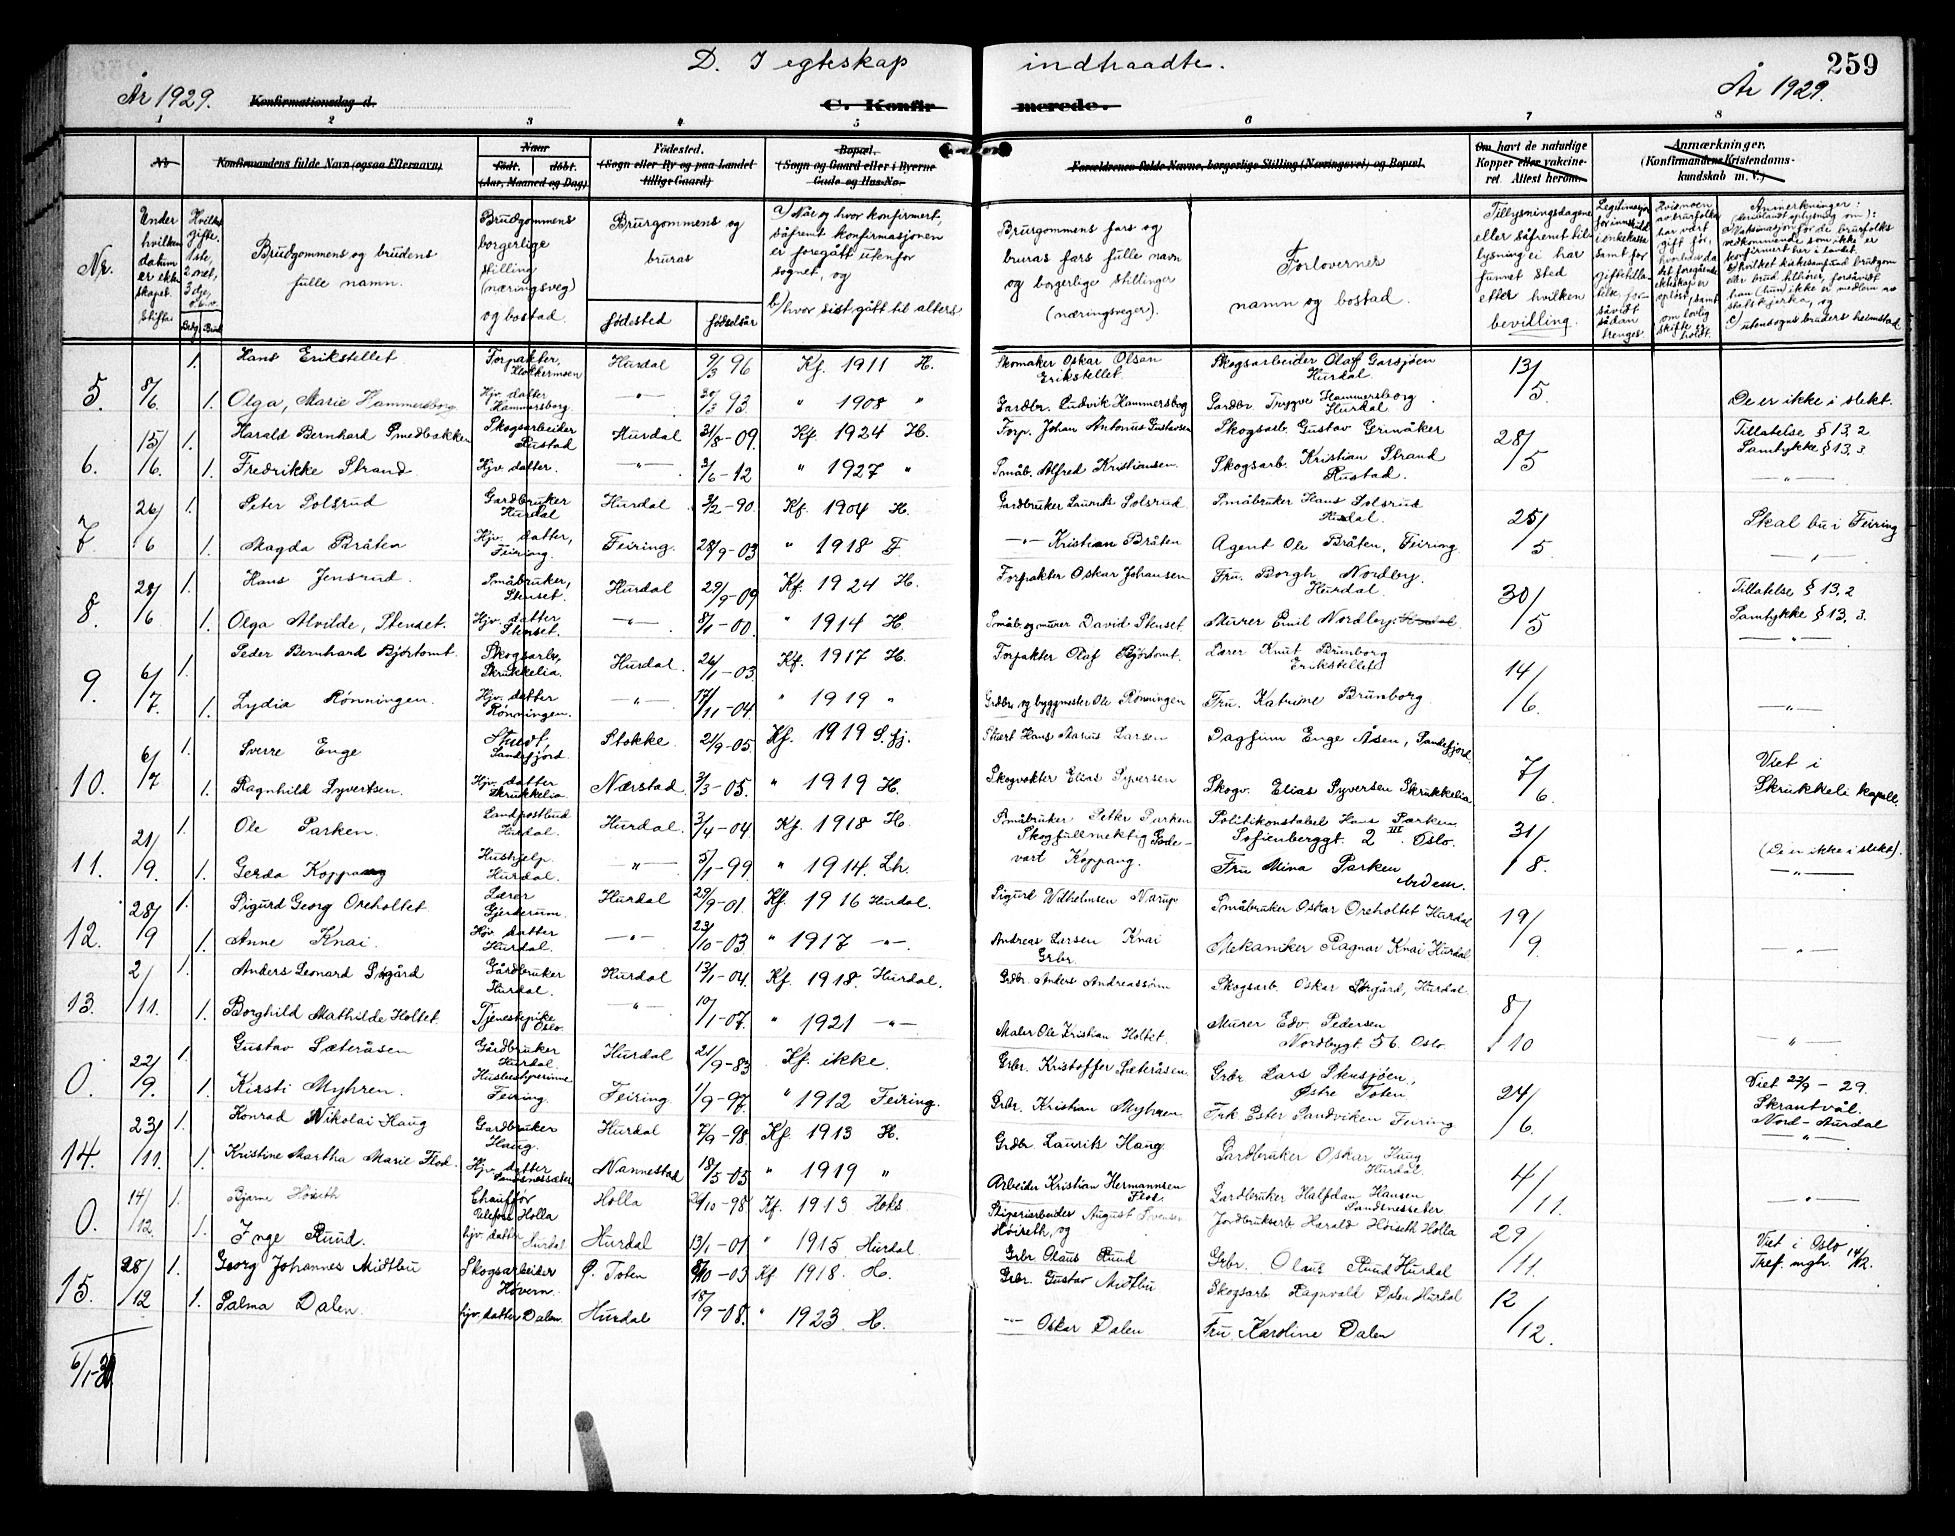 D. I egteskap indtraadte.
259
År 1929.
Konfirmationsdag d.
C. Konfirmerede.
År 1929.
1 2 3 4 5 6 7 8
Nr
Konfirmandens fulde Navn (ogsaa Efternavn)
Naar
født. døbt.
(Aar, Maaned og Dag)
Fødested.
(Sogn eller By og paa Landet
tillige Gaard)
Bopæl.
(Sogn og Gaard eller i Byerne
Gade og Hus-No.
Forældrenes fulde Navne, borgerlige Stilling (Næringsvei) og Bopæl.
Om havt de naturlige
Kopper eller vakcine-
ret Attest herom.
Anmærkninger.
(Konfirmandens Kristendoms-
kundskab m. V.)
Nr.
Under
hvilken
datum
er ekte-
skapet
stiftet
Hvilket
gifte.
1ste,
2net,
3dje,
o.s.v.
Brudg. Brud
Brudgommens og brudens
fulle namn.
Brudgommens
borgerlige
stilling
(næringsveg)
og bostad.
Brurgommens og
bruras
fødested fødselsår
a) Når og hvor konfirmert,
såfremt konfirmasjonen
er foregått utenfor
sognet, og
b) hvor sist gått til alters
Brurgommens fars og
bruras fars fulle navn
og borgerlige stillinger
(næringsveger).
Forlovernes
namn og bostad.
Tillysningsdagene
eller såfremt til-
lysning ei har
funnet sted
etter hvilken
bevilling.
Anmerkninger:
5. 8/6 1. Hans Erikstellet Forpakter, Hurdal 9/3 96 Kf. 1911 H. Skomaker Oskar Olsen Erikstellet. Skogsarbeider Olaf Garsjøen Hurdal 13/5
1. Olga, Marie Hammersborg Hjv. datter Hammersborg. —"— 30/3 93. " 1908 " Gardbr. Ludvik Hammersborg Gardbr. Trygve Hammersborg Hurdal De er ikke i slekt.
6. 15/6 1. Harald Bernhard Smedbakken Skogsarbeider Rustad Hurdal 31/8-09. Kf. 1924 H. Forp. Johan Antonius Gustavsen Skogsarb. Gustav Grinåker 28/5 Tillatelse § 13, 2
1. Fredrikke Strand Hjv. datter. —"— 3/6-12 " 1927 " Småb. Alfred Kristiansen. Skogsarb. Kristian Strand Rustad. Samtykke § 13, 3. —"—
7 26/6 1. Peter Solsrud Gardbruker Hurdal Hurdal 3/2-90. Kf. 1904 H. Gardbruker Laurits Solsrud Småbruker Hans Solsrud Hurdal. 25/5 Skal bu i Feiring
1. Magda Bråten Hjv. datter, Feiring. Feiring. 28/9-03 " 1918 F. —"— Kristian Bråten Agent Ole Bråten, Feiring —"—
8. 28/6 1. Hans Jensrud. Småbruker, Stenset. Hurdal 29/9-09 Kf. 1924 H. Forpakter Oskar Johansen Fru. Borgh. Nordby. Hurdal. 30/5 Tillatelse § 13, 2
1. Olga Alvilde, Stenset. Hjv. datter Stenset. —"— 8/1-00. " 1914 H. Småb. og murer David Stenset Murer Emil Nordby, Hurdal. Samtykke § 13, 3. —"—
9. 6/7. 1. Peder Bernhard Bjørtomt. Skogsarb., Skrukkelia. Hurdal. 26/1-03. Kf. 1917 H. Forpakter Olaf Bjørtomt. Lærer Knut Brunborg Erikstellet 14/6.
1. Lydia Rønningen. Hjv. datter Rønningen. —"— 17/11-04. " 1919 " Grdbr. og byggmester Ole Rønningen Fru. Katrine Brunborg —"—
10. 6/7 1. Sverre Enge Stuert, Sandefjord Stokke. 21/9-05 Kf. 1919 S.fj. Stuert Hans Marius Larsen Dagfinn Enge Åsen, Sandefjord 7/6. Viet i
1. Ragnhild Syvertsen. Hjv. datter Skrukkelia Nærstad. 3/3-05. " 1919 H. Skogvokter Elias Syversen Skogv. Elias Syversen Skrukkelia Skrukkeli kapell.
11. 21/9. 1. Ole Parken. Landpostbud Hurdal. Hurdal. 3/4-04 Kf. 1918 H. Småbruker Petter Parken Politikonstabel Hans Parken Sofienberggt. 2 III Oslo. 31/8.
1. Gerda Koppang Hushjelp Hurdal. —"— 5/1-99 " 1914. Lh. Skogfullmektig Gode- vart Koppang. Fru Mina Parken ibidem. (De er ikke i slekt). —"—
12. 28/9 1. Sigurd Georg Oreholtet Lærer Gjerderum. Hurdal 29/9-01. Kf. 1916 Hurdal. Sigurd Wilhelmsen Narup Småbruker Oskar Oreholtet Hurdal 19/9.
1. Anne Knai. Hjv. datter Hurdal. —"— 23/10-03 " 1917 —"— Andreas Larsen Knai Grbr. Mekaniker Ragnar Knai Hurdal "
13. 2/11. 1. Anders Leonard Skgård Gårdbruker Hurdal. Hurdal 13/1-04. Kf. 1918. Hurdal. Grdbr. Anders Andreassønn Skogsarb. Oskar Skrgård, Hurdal. 8/10
1. Borghild Mathilde Holtet. Tjenestepike Oslo. —"— 10/1-07. " 1921 —"— Maler Ole Kristian Holtet. Murer Edv. Pedersen Nordbygt 56. Oslo. —"—
0. 22/9. 1. Gustav Sæteråsen Gårdbruker Hurdal. Hurdal 21/9-83 Kf. ikke. Grbr. Kristoffer Sæteråsen. Grdr Lars Stensjøen, Østre Toten. 24/6. Viet 22/9-29.
1. Kirsti Myhren. Husbestyrerinne Feiring. Feiring. 1/9-97. " 1912 Feiring. Grbr. Kristian Myhren Frk Ester Sandviken Feiring Skrantvål. Nord-Aurdal
14. 23/11. 1. Konrad Nikolai Haug Gardbruker Haug. Hurdal 7/9-98. Kf. 1913 H. Grdbr Laurits Haug. Gardbruker Oskar Haug Hurdal. 4/11. —"—
1. Kristine Martha Marie Flod. Hjv. datter Sandnessæter Nannestad 18/5-05 " 1919 " Arbeider Kristian Hermannsen Flod. Gardbruker Halfdan Hansen Sandnesseter —"—
0. 14/12 1. Bjarne Høiseth Chauffør Ulefoss Holla Holla 24/10-98 Kf. 1913 Hols. Sliperiarbeider August Svensen Høiseth, og Jordbruksarb Harald Høiseth Holla 29/11. Viet i Oslo
1. Inge Ruud. hjv. datter Hurdal Hurdal 13/1-01 " 1915 Hurdal. Grbr. Olaus Ruud Grbr. Olaus Ruud Hurdal Tref. mgh. 14/12.
15. 28/12 1. Georg Johannes Midtbu Skogsarbeider Høvern. Ø. Toten 8/10-03 Kf. 1918. H. Grbr. Gustav Midtbu Skogsarb Ragnvald Dalen Hurdal 12/12.
1. Palma Dalen. hjv. datter Dalen. Hurdal 18/9-08. " 1923 H. —"— Oskar Dalen Fru. Karoline Dalen
6/1-30